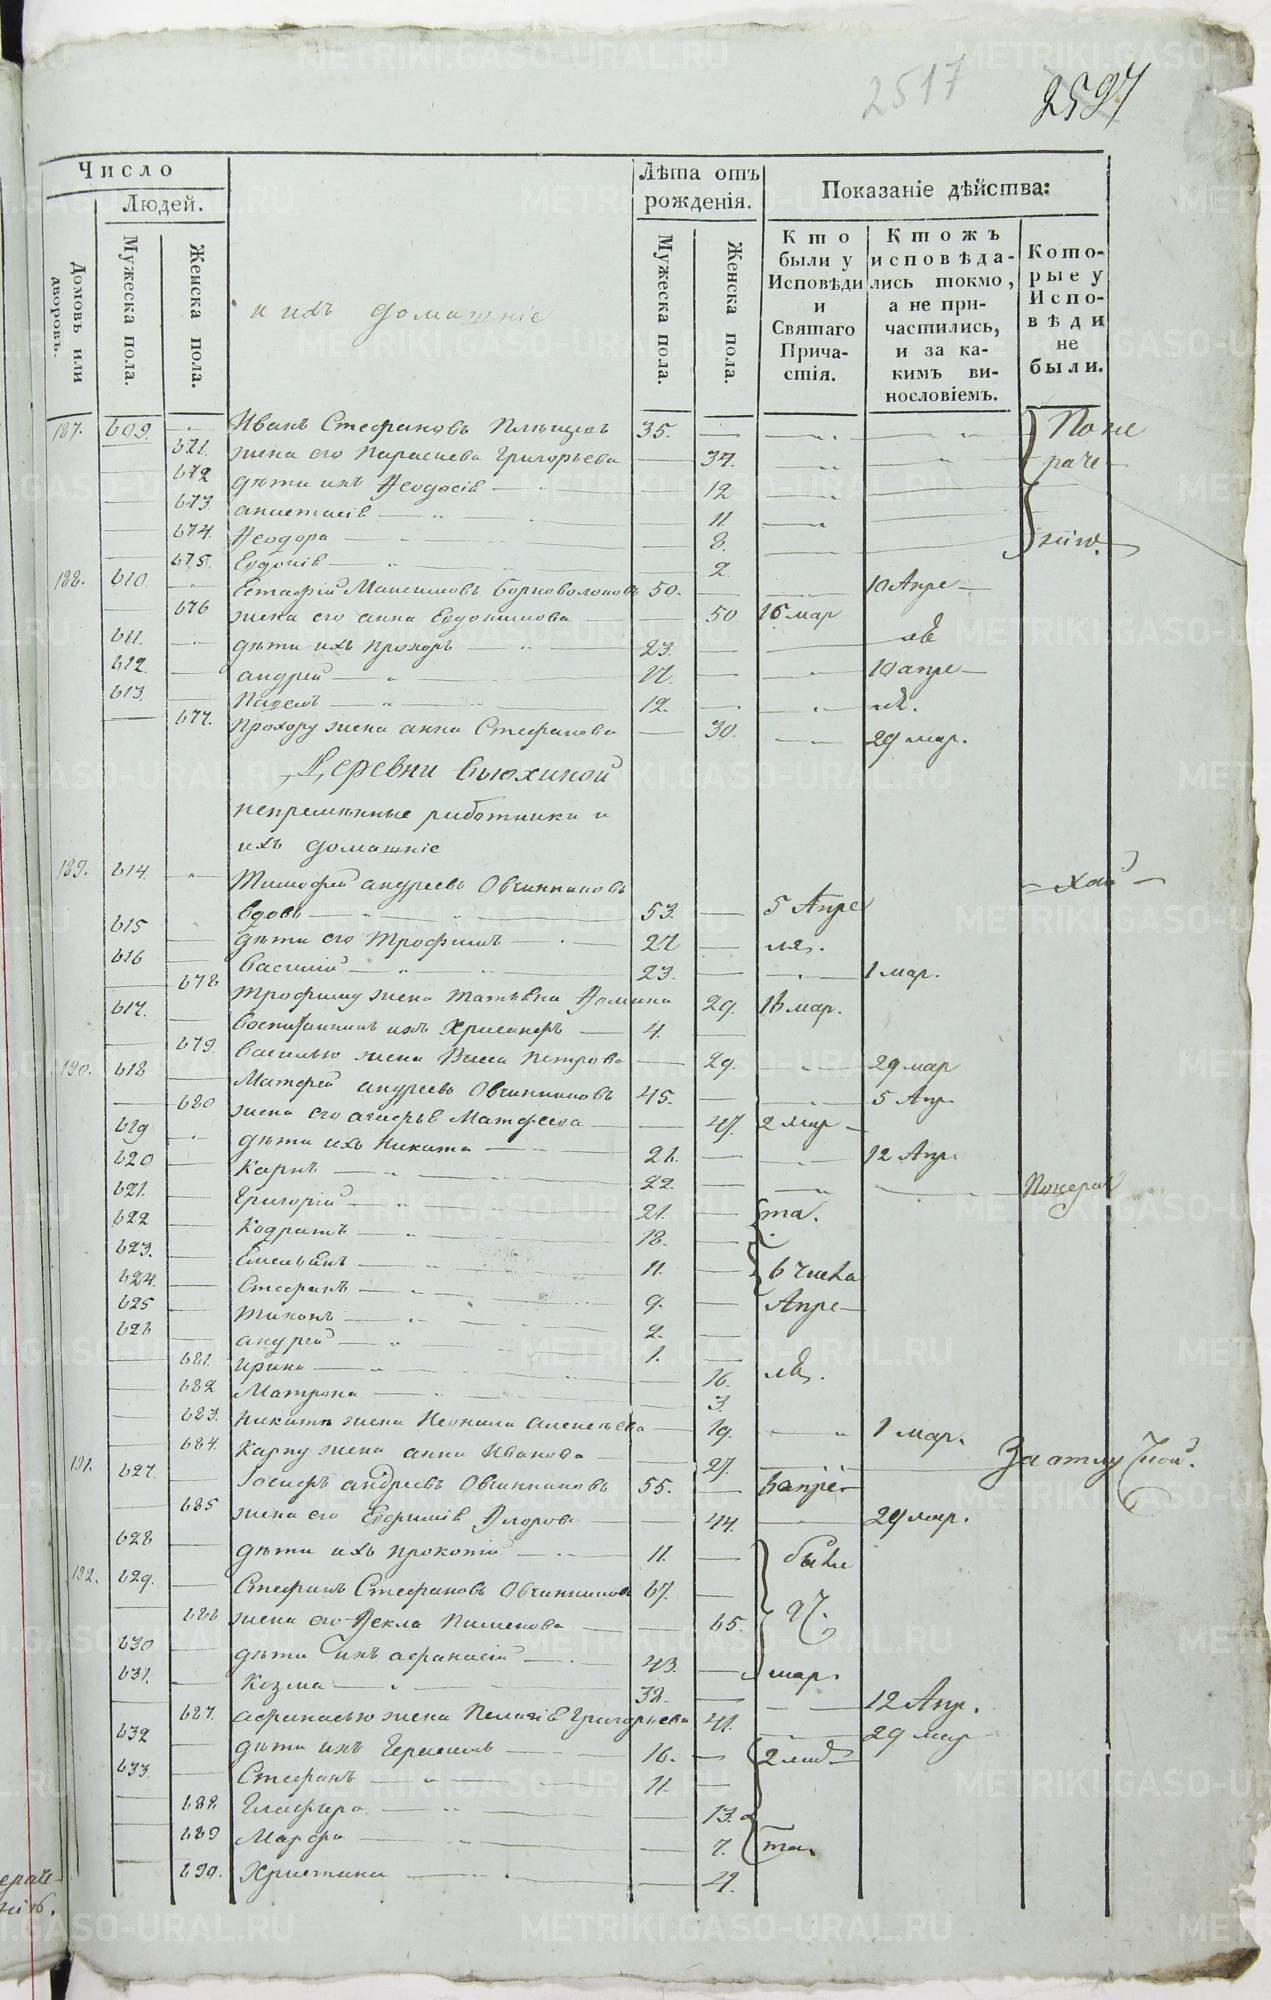 2517
2527
Число
Людей.
Домовъ или дворовъ.
Мужеска пола.
Женска пола.
и ихъ домашніе
Лѣта отъ рожденія.
Мужеска пола.
Женска пола.
Показаніе дѣйства:
Кто были у Исповѣди и Святаго Причастія.
Ктожъ исповѣдались токмо, а не причастились, и за какимъ винословіемъ.
Которые у Исповѣди не были.
187. 609. Иванъ Стефановъ 35. По не
671. жена его Параскева Григорьева 37. раче
672 дѣти ихъ Ѳеодосія 12
673. анастасія 11
674. Ѳеодора 8.
675. Евдокія 2. нію.
188. 610. Естафій Максимовъ 50. 10 Апре
676 жена его анна Евдокимова 50 16 мар
611. дѣти ихъ Прохоръ 23. ля
612. андрей 17. 10 апре
613. Павелъ 12. ля.
677. Прохору жена анна Стефанова 30. 29 мар.
Деревни Вьюхиной
непремѣнные работники и
ихъ домашніе
189. 614. Тимофей андреевъ Овчинниковъ
вдовъ 53. 5 Апре
615 дѣти его Трофимъ 27 ля.
616 Василій 23. 1 мар.
678 Трофиму жена Татьяна Ѳомина 29. 16 мар.
617. Воспитанникъ ихъ Хрисанфъ 4.
679. Василью жена Васса Петрова 29. 29 мар
190. 618 Матфей андреевъ Овчинниковъ 45. 5 Апр.
680 жена его агафья Матфеева 47. 2 мар
619 дѣти ихъ Никита 26. 12 Апр.
620 Карпъ 22.
621. Григорій 21. та.
622 Кодратъ 18.
623. Емельянъ 11. 6 числа
624. Стефанъ 9. Апре
625 Тихонъ 2.
626 андрей 1.
681. Ирина 16. ля.
682 Матрона 3.
683. Никитѣ жена Неонила алексѣева 19. 1 мар.
684. Карпу жена анна Иванова 27. За отлучкой.
191. 627. Іосифъ андреевъ Овчинниковъ 55. 6 апре
685 жена его Евфимія 44. 29 мар.
628 дѣти ихъ Прокопій 11. были
192. 629. Стефанъ Стефановъ Овчинниковъ 67.
686 жена его Ѳекла Пименова 65.
630 дѣти ихъ афанасій 43.
631. Козма 32. мар.
687. афанасью жена Пелагія Григорьева 41. 12 Апр.
632 дѣти ихъ Герасимъ 16. 29 мар
633. Стефанъ 11.
688 Глафира 13.
689 Марфа 7.
690. Христина 4.